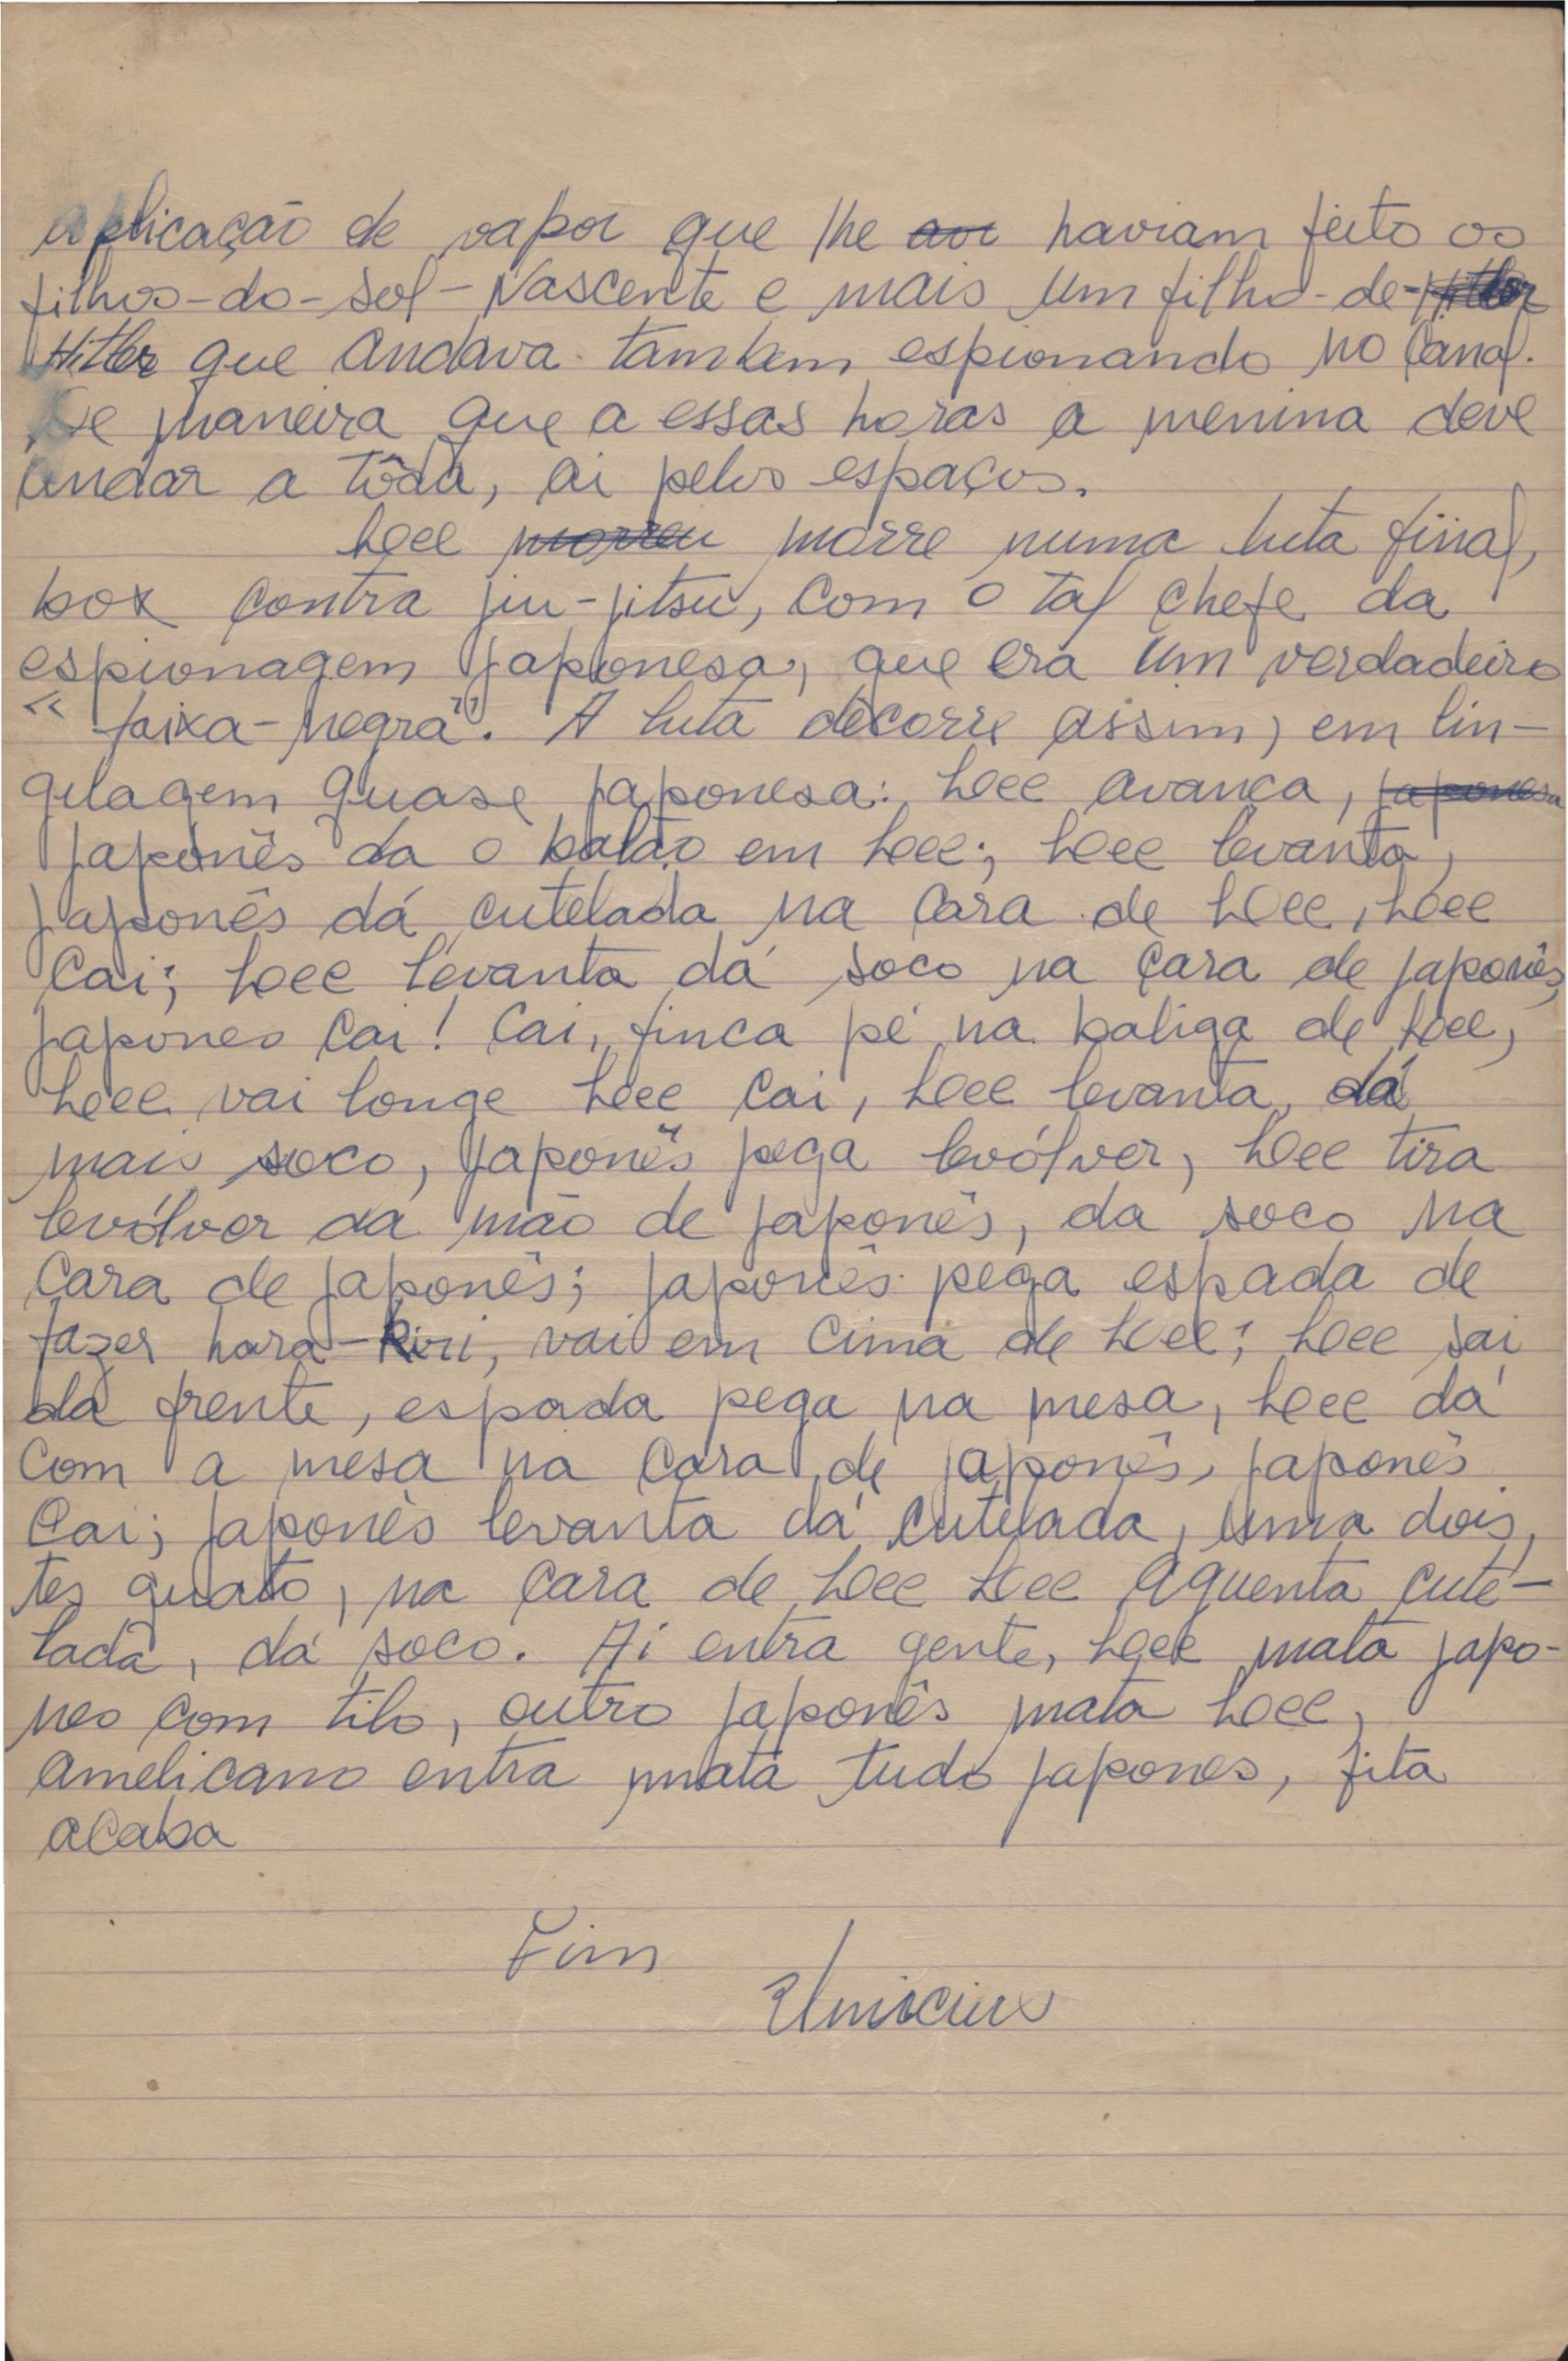 aplicação de vapor que lhe haviam feito os
filhos-do-Sol-Nascente e mais um filho-de-
Hitler que andava tambem espionando no Canal.
De maneira que a essas horas a menina deve
andar a tôda, ai pelos espaços.
Lee morreu morre numa luta final,
box contra jiu-jitsu, com o tal chefe da
espionagem japonesa, que era um verdadeiro
"faixa-negra". A luta decorre assim, em lin-
guagem quase japonesa: Lee avança, japonesa
japonês da o balão em Lee; Lee levanta,
japonês dá cutelada na cara de Lee, Lee
cai; Lee levanta dá soco na cara de japonês,
japones cai! Cai, finca pé na baliga de Lee,
Lee vai longe Lee cai, Lee levanta, dá
mais soco, japonês pega levólver, Lee tira
levólver da mão de japonês, da soco na
cara de japonês; japonês pega espada de
fazer hara-kiri, vai em cima de Lee; Lee sai
da frente, espada pega na mesa, Lee dá
com a mesa na cara de japonês, japonês
cai; japonês levanta dá cutelada, uma dois,
tes quato, na cara de Lee Lee aguenta cute-
lada, dá soco. Aí entra gente, Lee mata japo-
nes com tilo, outro japonês mata Lee,
amelicano entra mata tudo japones, fita
acaba
Fim
Vinicius